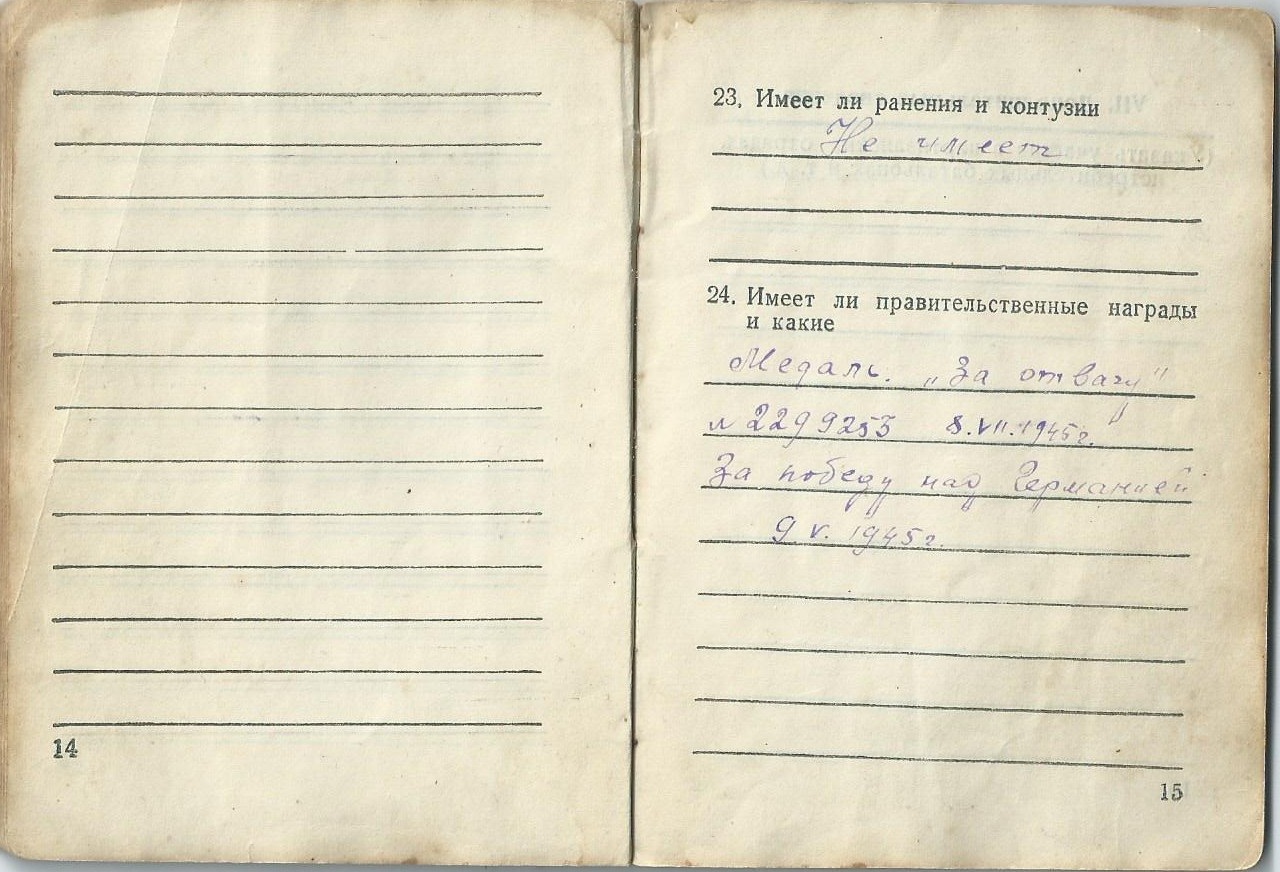 14
23. Имеет ли ранения и контузии
Не имеет
24. Имеет ли правительственные награды
и какие
Медаль. „За отвагу"
№ 2299253 8.VII.1945г.
За победу над Германией
9.V.1945г.
15